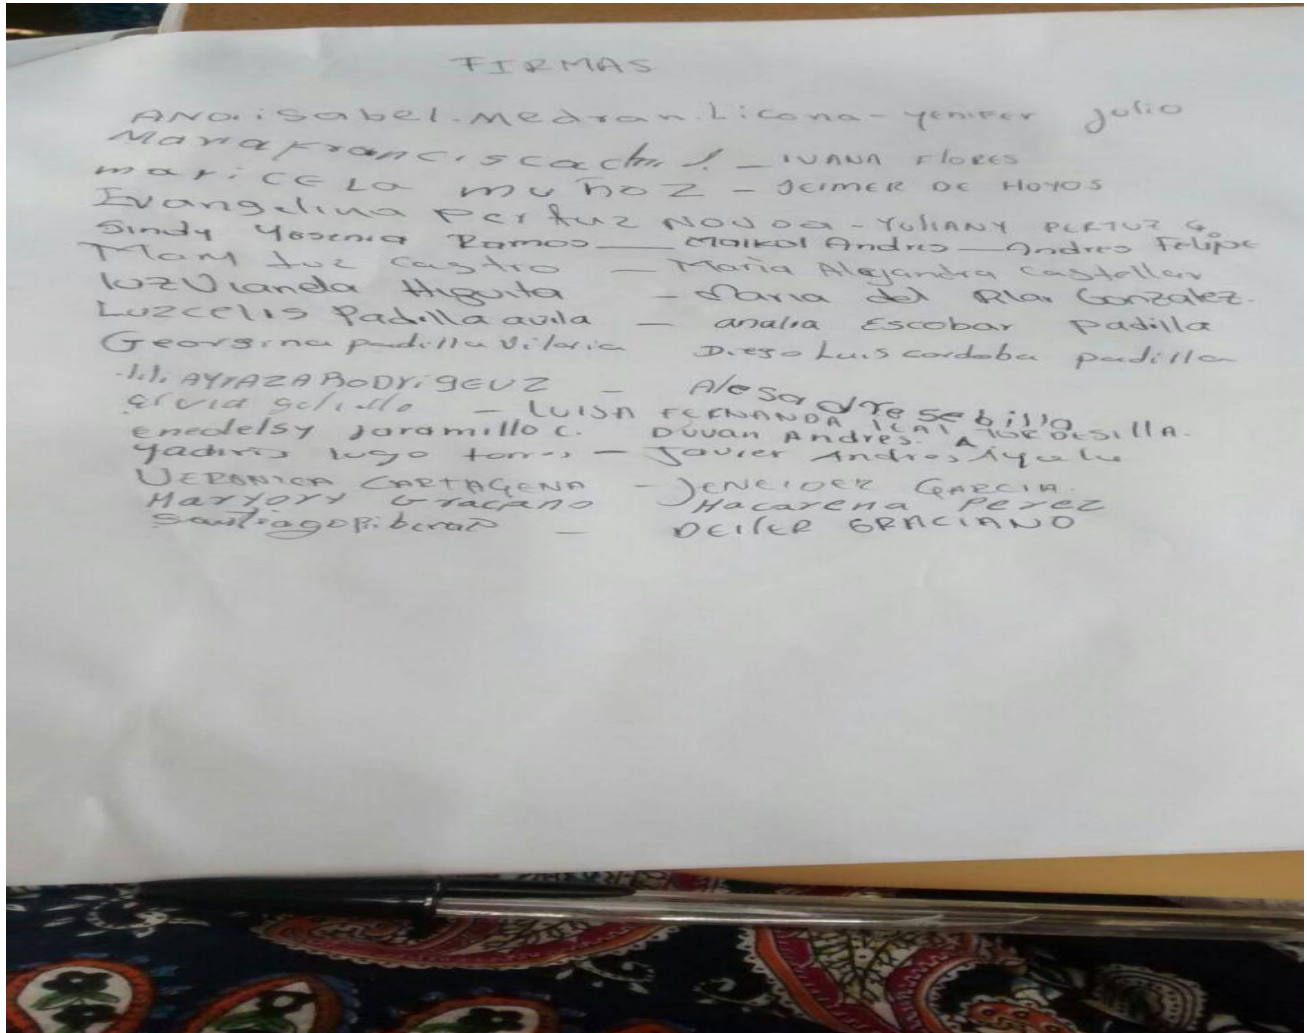 FIRMAS
ANaisabel.Medran.Licona - yenifer Julio
Maria Francisca - IVANA FLORES
maricela muñoz - JEIMER DE HOYOS
Evangelina Pertuz Novoa - YULIANY PERTUZ
Sindy Yosenia Ramos — Maikol Andres — Andres Felipe
Mary luz Castro - Maria Alejandra Castellar
luz Vianeda Higuita - Maria del Pilar Gonzalez.
Luzcelis Padilla avila - analia Escobar Padilla
Georgina padilla Viloria Diego Luis cordoba padilla
AYRAZA RODrigeuz - Alesadre sebilla
- LUISA FERNANDA
enedelsy Jaramillo c. Duvan Andres.
Yadiris lugo torres - Javier Andres Ayala
VERONICA CARTAGENA - JENEIDER GARCIA.
Maryory Graciano Macarena Perez
Santiago - DEILER GRACIANO